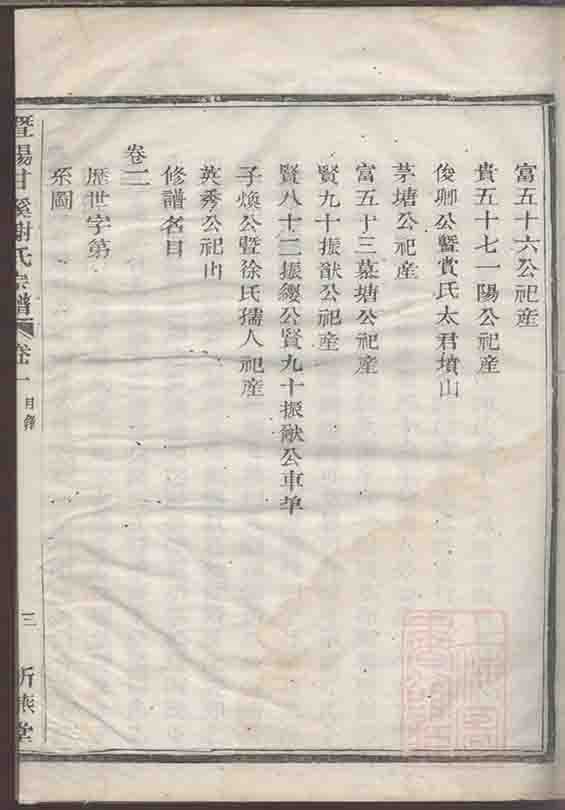 富五十六公祀產
貴五十七一陽公祀產
俊卿公暨黃氏太君墳山
茅塘公祀產
富五十三墓塘公祀產
賢九十振猷公祀產
賢八十二振纓公賢九十振猷公車單
子煥公暨徐氏孺人祀產
英秀公祀山
修譜名目
卷二
歷世字第
系圖
暨陽甘溪謝氏宗譜
卷一
目錄
三